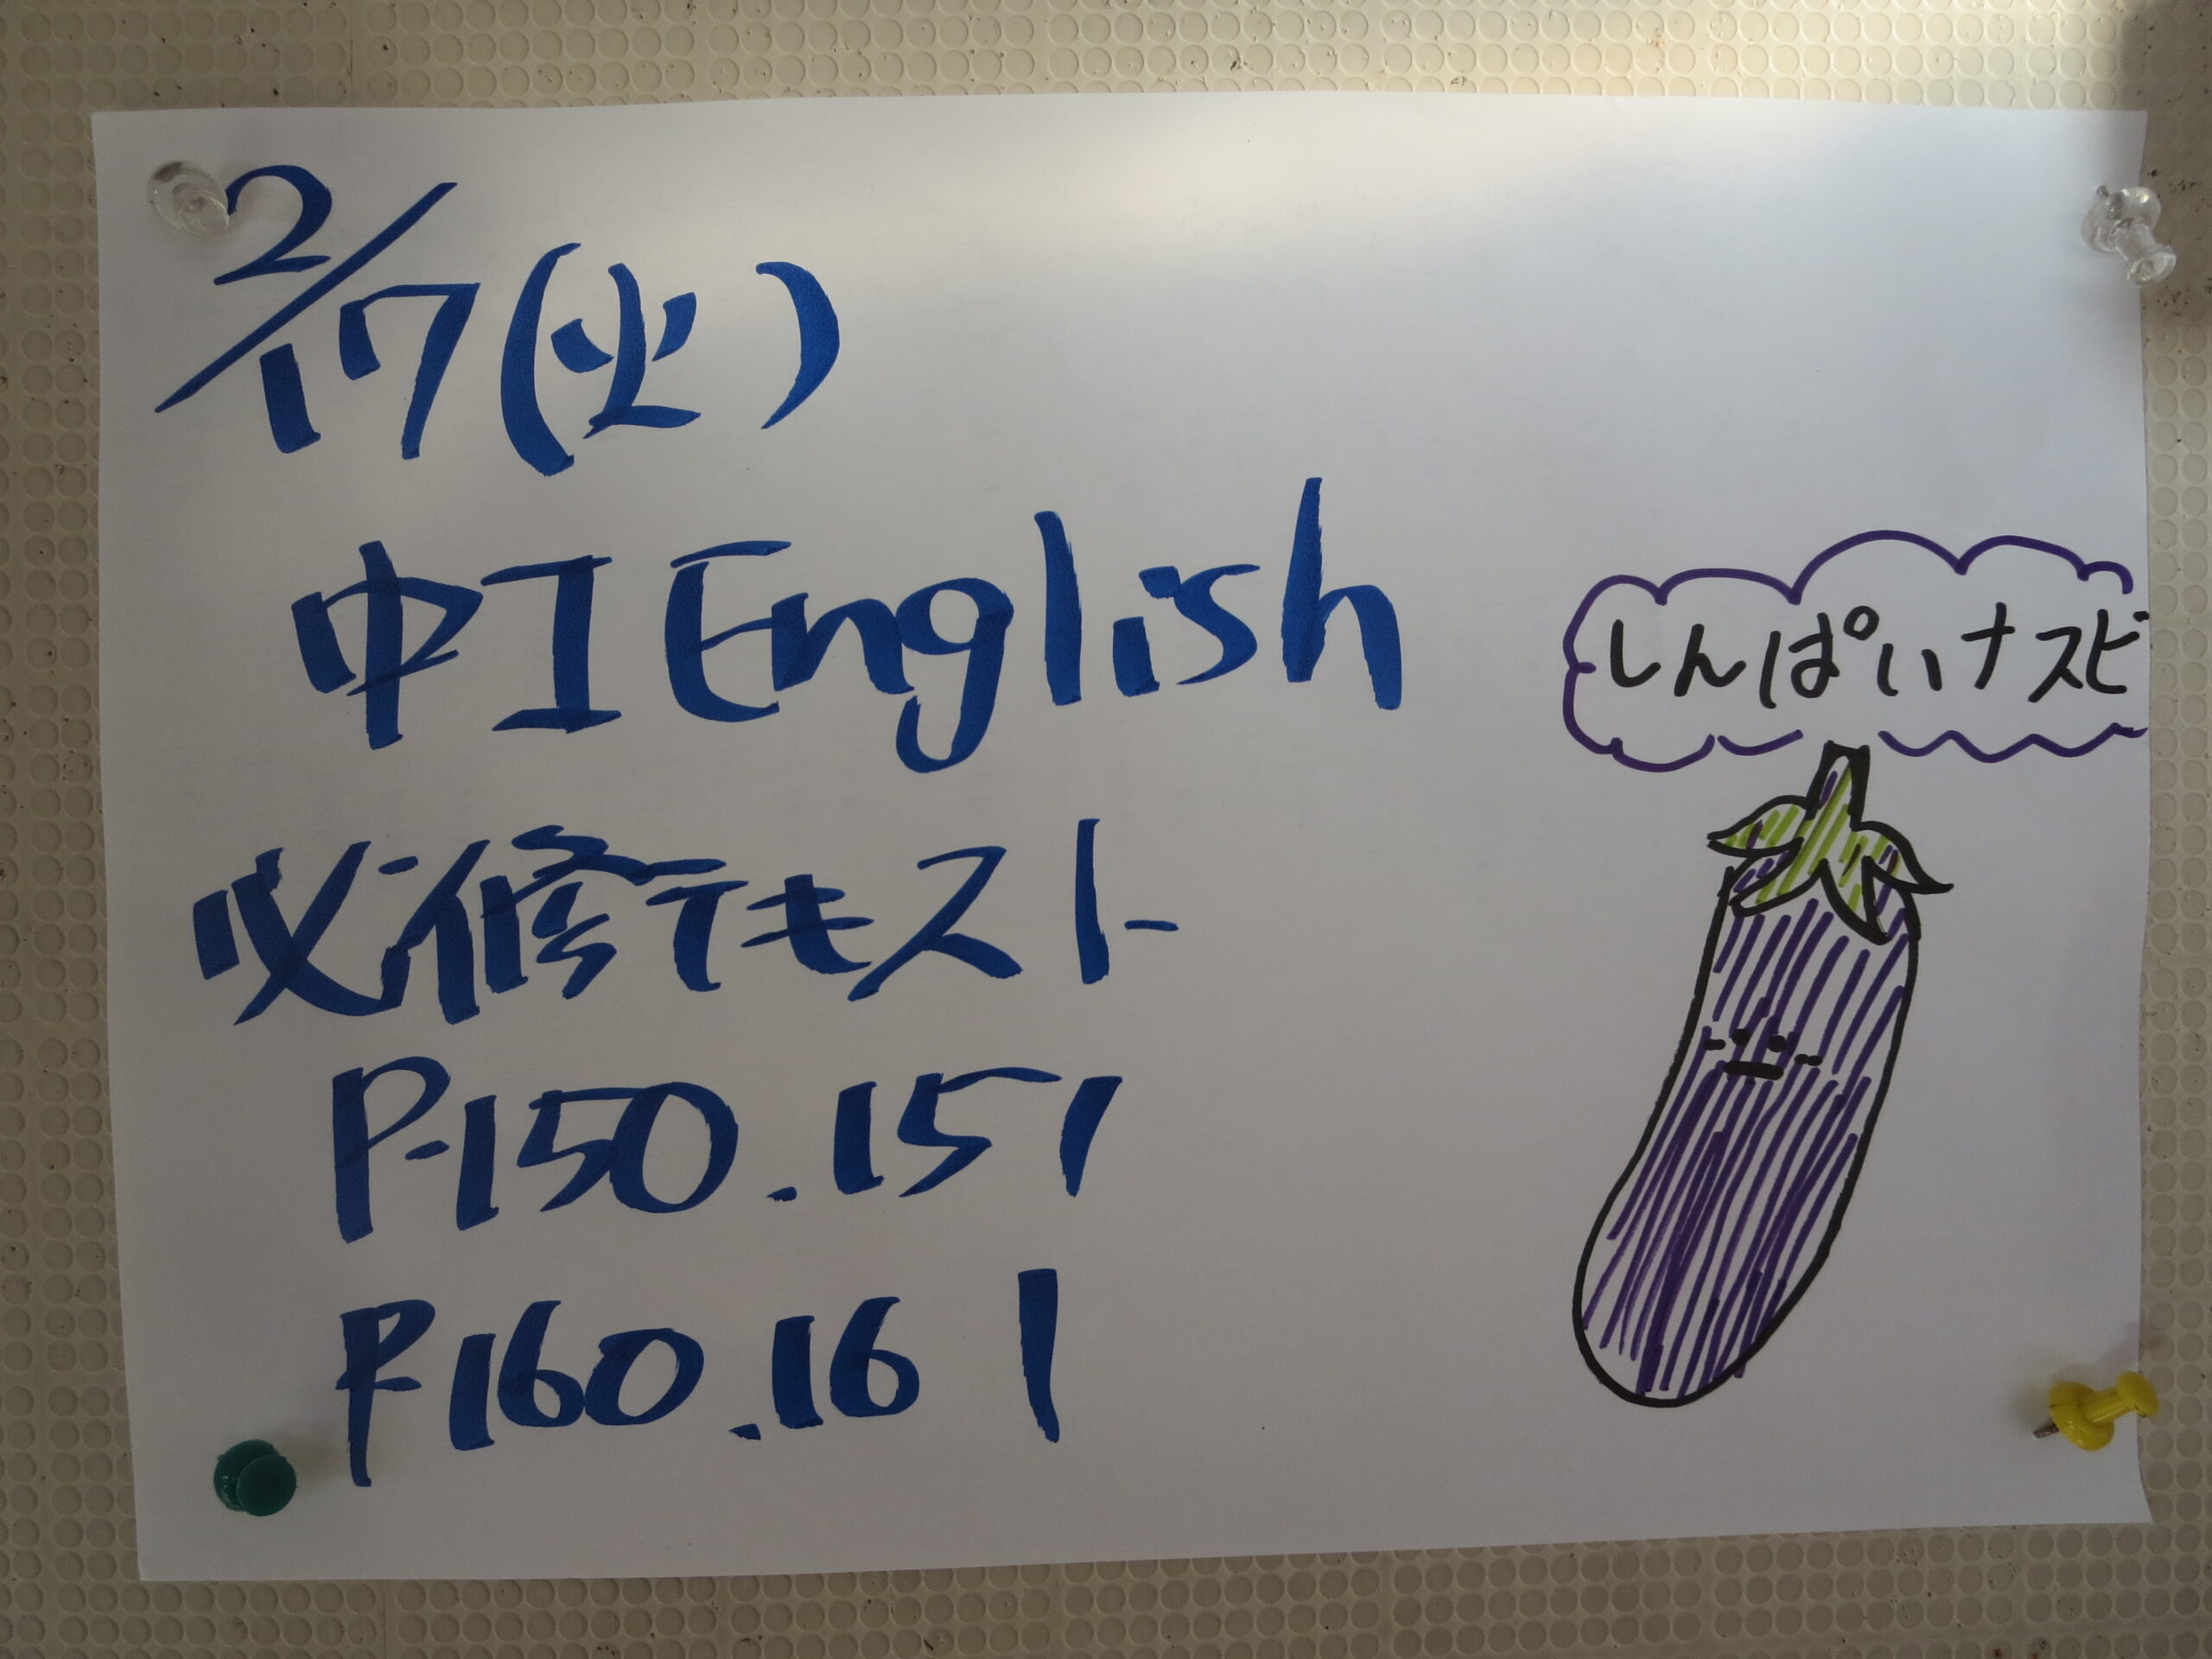 2/17(火)
中I English
必修テキスト
P.150.151
P.160.161
しんぱいナスビ